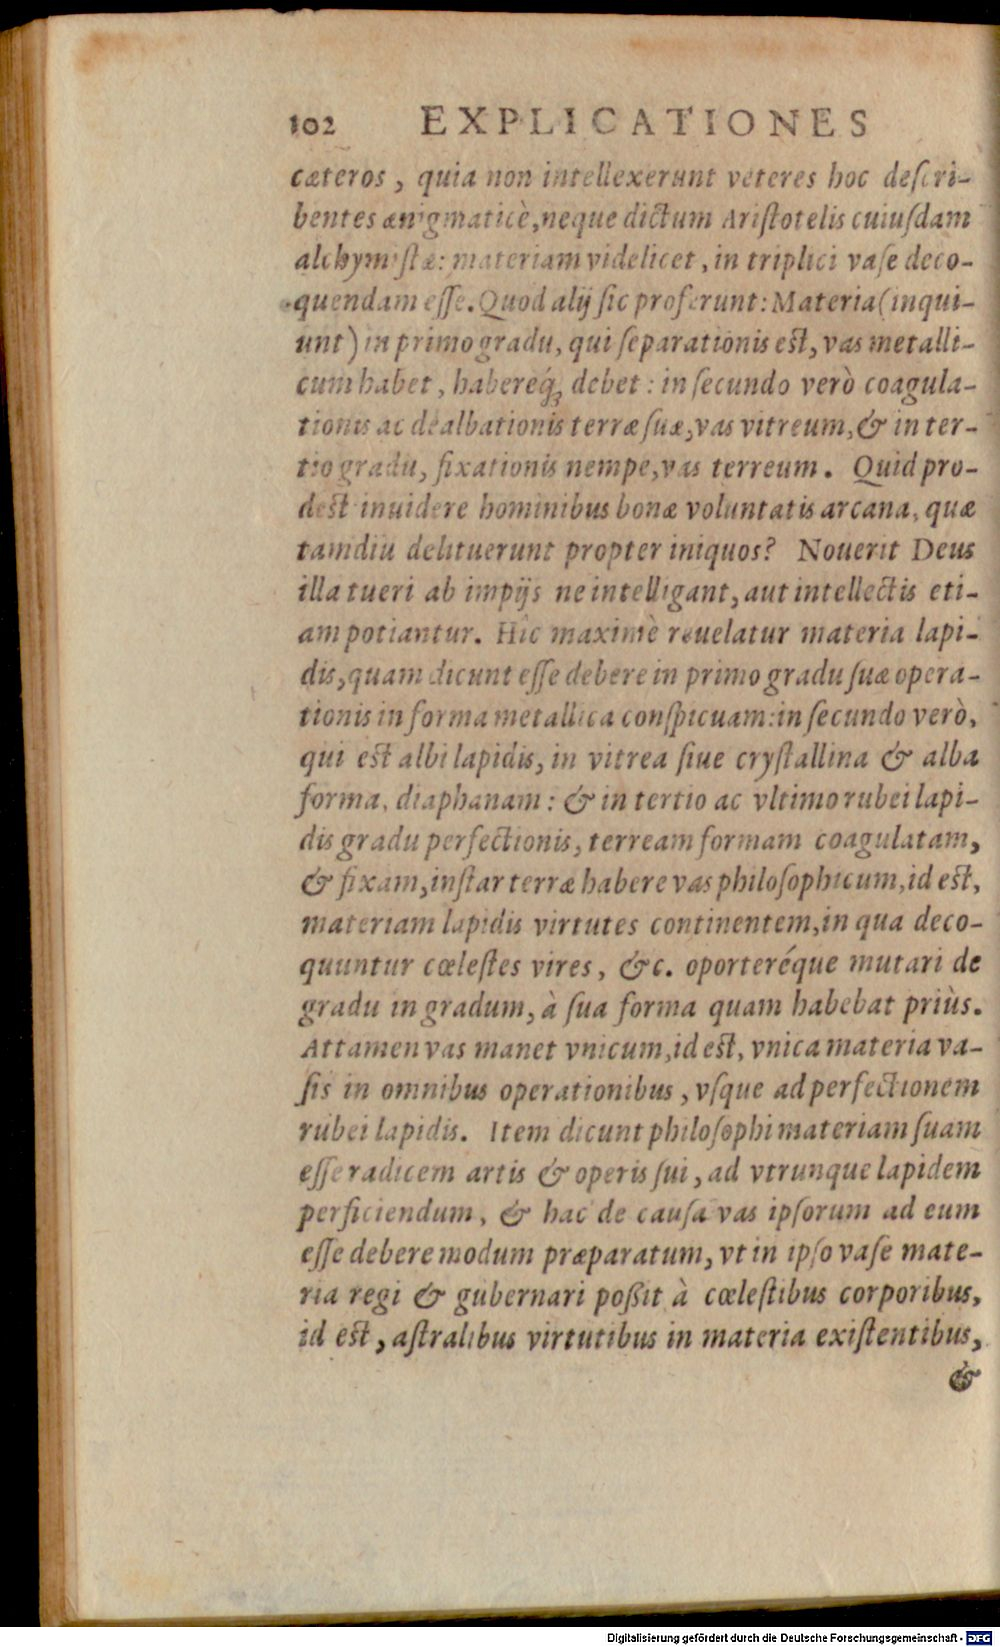 102 EXPLICATIONES
cæteros, quia non intellexerunt veteres hoc deſcri-
bentes ænigmaticè, neque dictum Ariſtotelis cuiuſdam
alchymiſtæ: materiam videlicet, in triplici vaſe deco-
quendam eſſe. Quod alij ſic proferunt: Materia (inqui-
unt) in primo gradu, qui ſeparationis eſt, vas metalli-
cum habet, habereq́ꝫ debet: in ſecundo verò coagula-
tionis ac dealbationis terræ ſuæ, vas vitreum, & in ter-
tio gradu, fixationis nempe, vas terreum. Quid pro-
deſt inuidere hominibus bonæ voluntatis arcana, quæ
tamdiu delituerunt propter iniquos? Nouerit Deus
illa tueri ab impijs ne intelligant, aut intellectis eti-
am potiantur. Hîc maximè reuelatur materia lapi-
dis, quam dicunt eſſe debere in primo gradu ſuæ opera-
tionis in forma metallica conſpicuam: in ſecundo verò,
qui eſt albi lapidis, in vitrea ſiue cryſtallina & alba
forma, diaphanam: & in tertio ac vltimo rubei lapi-
dis gradu perfectionis, terream formam coagulatam,
& fixam, inſtar terræ habere vas philoſophicum, id eſt,
materiam lapidis virtutes continentem, in qua deco-
quuntur cœleſtes vires, &c. oporteréque mutari de
gradu in gradum, à ſua forma quam habebat priùs.
Attamen vas manet vnicum, id eſt, vnica materia va-
ſis in omnibus operationibus, vſque ad perfectionem
rubei lapidis. Item dicunt philoſophi materiam ſuam
eſſe radicem artis & operis ſui, ad vtrunque lapidem
perficiendum, & hac de cauſa vas ipſorum ad eum
eſſe debere modum præparatum, vt in ipſo vaſe mate-
ria regi & gubernari poßit à cœleſtibus corporibus,
id eſt, aſtralibus virtutibus in materia exiſtentibus,
&
Digitalisierung gefördert durch die Deutsche Forschungsgemeinschaft - DFG